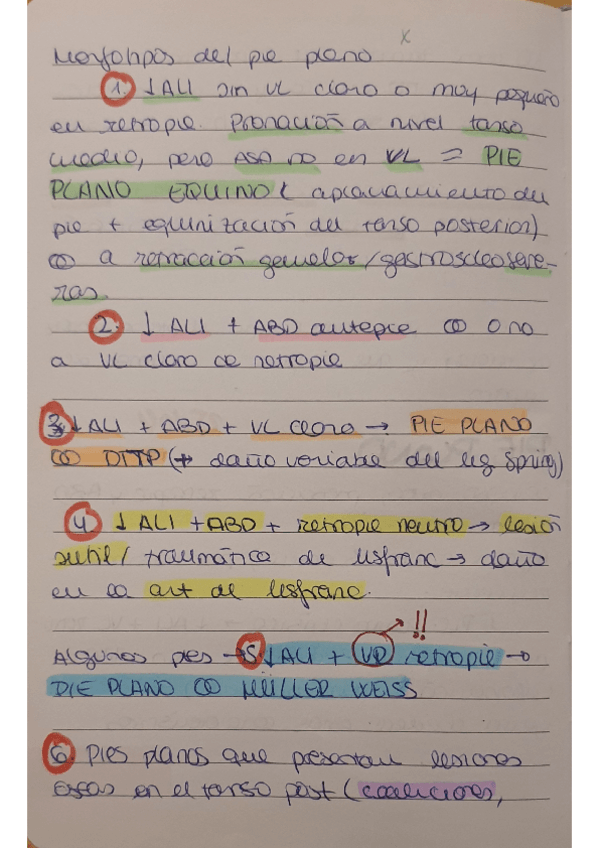 Morfotipos del pie plano
1. ↓ALI sin VL claro o muy pequeño
en retropie. Pronación a nivel tarso
medio, pero ASA no en VL = PIE
PLANO EQUINO (aplanamiento del
pie + equinización del tarso posterior)
2º a retracción gemelos/gastrosóleoseve-
ras.
2. ↓ALI + ABD antepie con o no
a VL claro de retropie
3. ↓ALI + ABD + VL claro → PIE PLANO
DTTP (+ daño variable del lig Spring)
4. ↓ALI + ABD + retropie neutro → lesión
sutil/traumática de lisfranc → daño
en la art de lisfranc.
!!
Algunos pies → 5. ↓ALI + VR retropie →
PIE PLANO MÜLLER WEISS
6. Pies planos que presentan lesiones
en el tarso post (coaliciones,